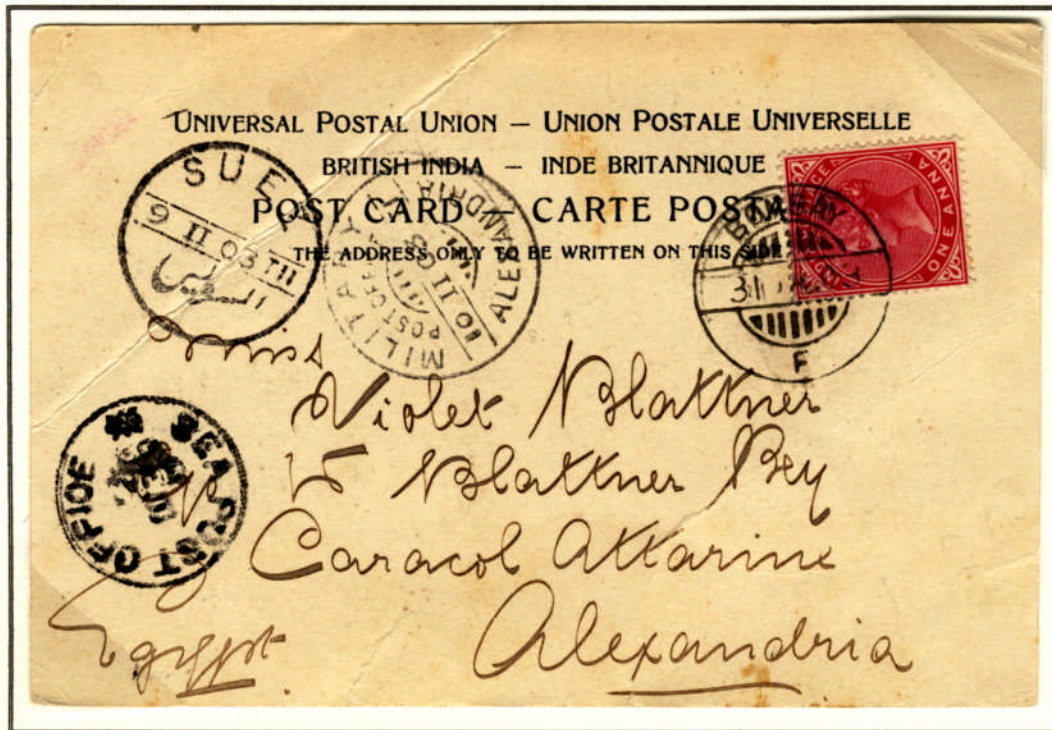 UNIVERSAL POSTAL UNION — UNION POSTALE UNIVERSELLE
BRITISH INDIA — INDE BRITANNIQUE
POST CARD — CARTE POSTALE
THE ADDRESS ONLY TO BE WRITTEN ON THIS SIDE
SUEZ
9 II 03 TII
السويس
MILITARY
POST OFFICE
10 II 03
ALEXANDRIA
BOMBAY
31
F
ONE ANNA
SEA POST OFFICE
Miss
Violet Blattner
Blattner Bey
Caracol Attarine
Alexandria
Egypt